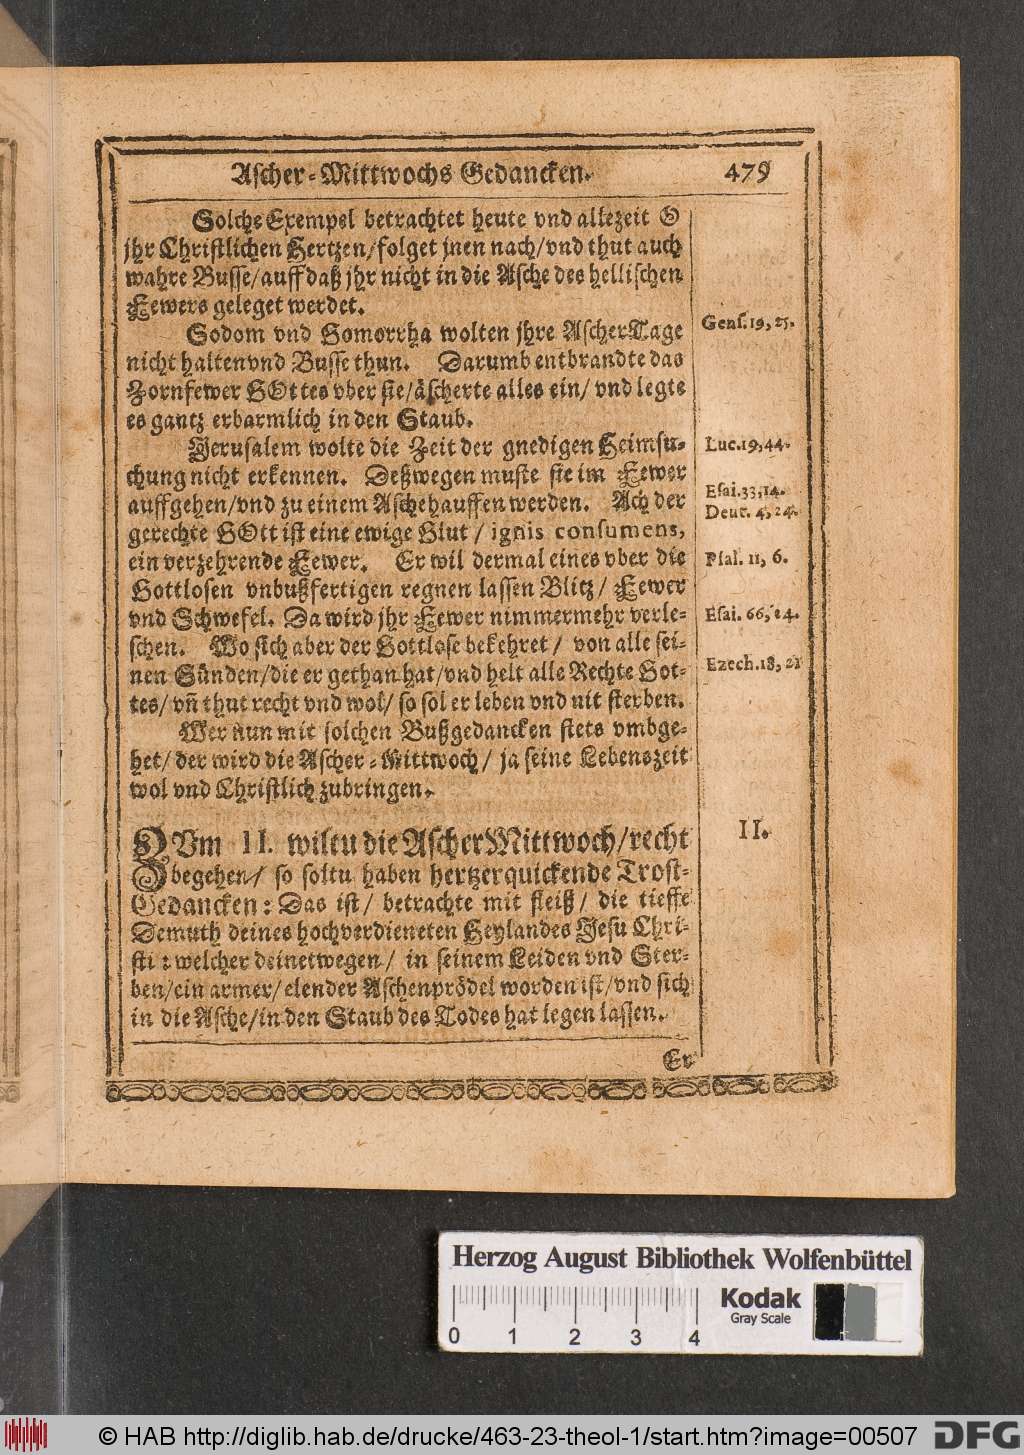 Ascher-Mittwochs Gedancken. 479
Solche Exempel betrachtet heute vnd allezeit O
jhr Christlichen Hertzen/folget jnen nach/vnd thut auch
wahre Busse/auff daß jhr nicht in die Asche des hellischen
Fewers geleget werdet.
Sodom vnd Gomorrha wolten jhre AscherTage
Gens. 19, 25.
nicht halten vnd Busse thun. Darumb entbrandte das
Zornfewer GOttes vber sie/äscherte alles ein/vnd legte
es gantz erbarmlich in den Staub.
Jerusalem wolte die Zeit der gnedigen Heimsu-
Luc. 19, 44.
chung nicht erkennen. Deßwegen muste sie im Fewer
Esai. 33, 14.
auffgehen/vnd zu einem Aschehauffen werden. Ach der
Deut. 4, 24.
gerechte GOtt ist eine ewige Glut / ignis consumens,
ein verzehrende Fewer. Er wil dermal eines vber die
Psal. 11, 6.
Gottlosen vnbußfertigen regnen lassen Blitz/ Fewer
vnd Schwefel. Da wird jhr Fewer nimmermehr verle-
Esai. 66, 24.
schen. Wo sich aber der Gottlose bekehret / von alle sei-
nen Sünden/die er gethan hat/vnd helt alle Rechte Got-
Ezech. 18, 21
tes/ vñ thut recht vnd wol/ so sol er leben vnd nit sterben.
Wer nun mit solchen Bußgedancken stets vmbge-
het/ der wird die Ascher-Mittwoch/ ja seine Lebenszeit
wol vnd Christlich zubringen.
ZVm II. wiltu die AscherMittwoch/recht
II.
begehen/ so soltu haben hertzerquickende Trost-
Gedancken: Das ist/ betrachte mit fleiß/ die tieffe
Demuth deines hochverdieneten Heylandes Jesu Chri-
sti: welcher deinetwegen/ in seinem Leiden vnd Ster-
ben/ein armer/elender Aschenprödel worden ist/vnd sich
in die Asche/in den Staub des Todes hat legen lassen.
Er
Herzog August Bibliothek Wolfenbüttel
Kodak
Gray Scale
0 1 2 3 4
© HAB http://diglib.hab.de/drucke/463-23-theol-1/start.htm?image=00507
DFG